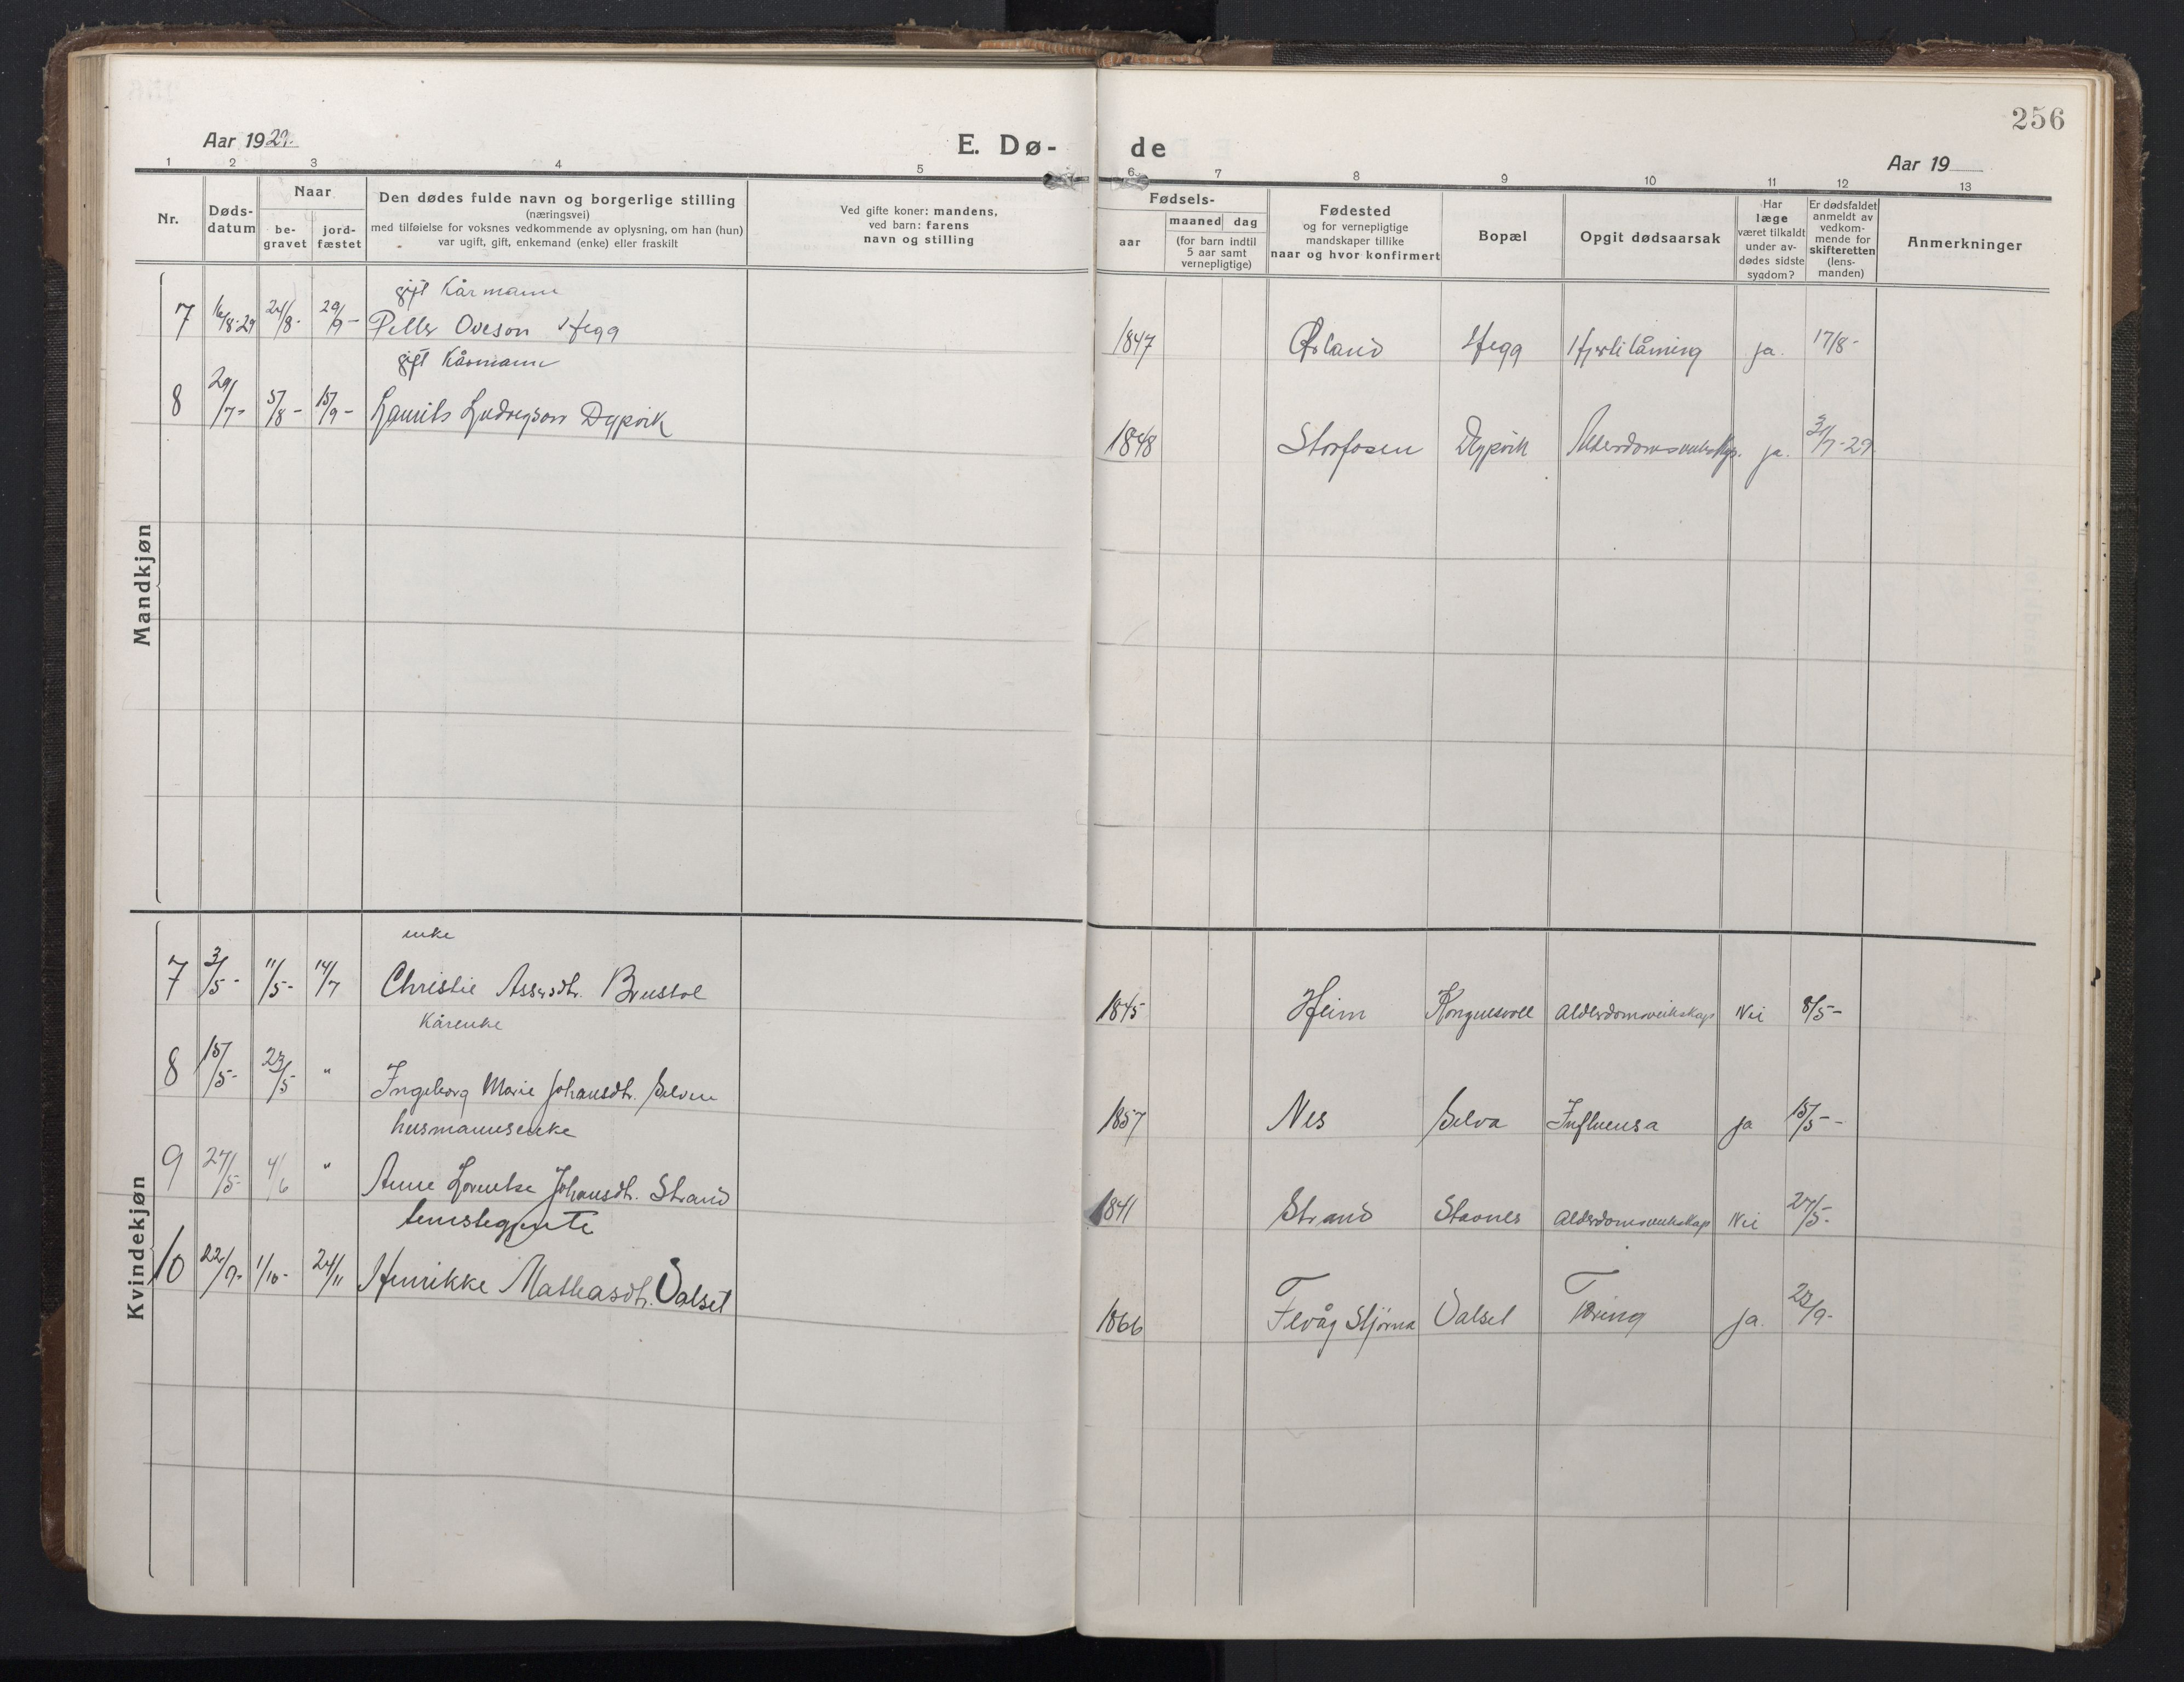 256
Aar 1929.
E. Dø-
de
Aar 19
1 2 3 4 5 6 7 8 9 10 11 12 13
Nr.
Døds-
datum
Naar
be-
gravet
jord-
fæstet
Den dødes fulde navn og borgerlige stilling
(næringsvei)
med tilføielse for voksnes vedkommende av oplysning, om han (hun)
var ugift, gift, enkemand (enke) eller fraskilt
Ved gifte koner: mandens,
ved barn: farens
navn og stilling
Fødsels-
aar
maaned dag
(for barn indtil
5 aar samt
vernepligtige)
Fødested
og for vernepligtige
mandskaper tillike
naar og hvor konfirmert
Bopæl
Opgit dødsaarsak
Har
læge
været tilkaldt
under av-
dødes sidste
sygdom?
Er dødsfaldet
anmeldt av
vedkom-
mende for
skifteretten
(lens-
manden)
Anmerkninger
Mandkjøn
gift Kårmann
7 16/8-29 24/8- 29/9- Petter Oveson Hegg 1847 Ørland Hegg Hjertelåming ja. 17/8-
gift Kårmann
8 29/7- 5/8- 15/9- Laurits Ludvigson Dypvik 1848 Storfosen Dypvik ja. 31/7-29
Kvindekjøn
enke
7 3/5- 11/5- 14/7 Christie Assersdtr. 1845 Heim Kongensvoll Alderdomsveikskap Nei 8/5-
Kårenke
8 15/5- 23/5 " Ingeborg Marie Johansdtr. Selven 1857 Nes Selva Influensa ja 15/5-
husmannsenke
9 27/5- 4/6 " Anne Lorentse Johansdtr. Strand 1841 Strand Stavnes Alderdomsveikskap Nei 27/5-
10 22/9- 1/10- 24/11 Henrikke Mathiasdtr. Valset 1866 Fevåg Stjørna Valset Tæring ja. 23/9-